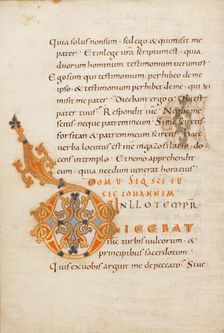 Quia solus non sum. sed ego & qui misit me
pater. Et in lege vra scriptum est. quia
duorum hominum testimonium verum est.
Ego sum qui testimonium perhibeo de me
ipso. & testimonium perhibet de me. qui mi
sit me pater. Dicebant ergo ei. Ubi est
pater tuus? Respondit ihc. Neque me
scitis. neque patrem meum. Si me sciretis
forsitan & patrem meum sciretis. Haec
verba locutus est ihc in gazofilatio. do
cens in templo. Et nemo apprehendit
eum. quia necdum venerat hora eius.
SCI EU
IOHANNEM.
IN ILLO TEMPR
DICEBAT
IHC turbis iudeorum. &
principibus sacerdotum.
Quis ex vobis arguit me de peccato? Si ue